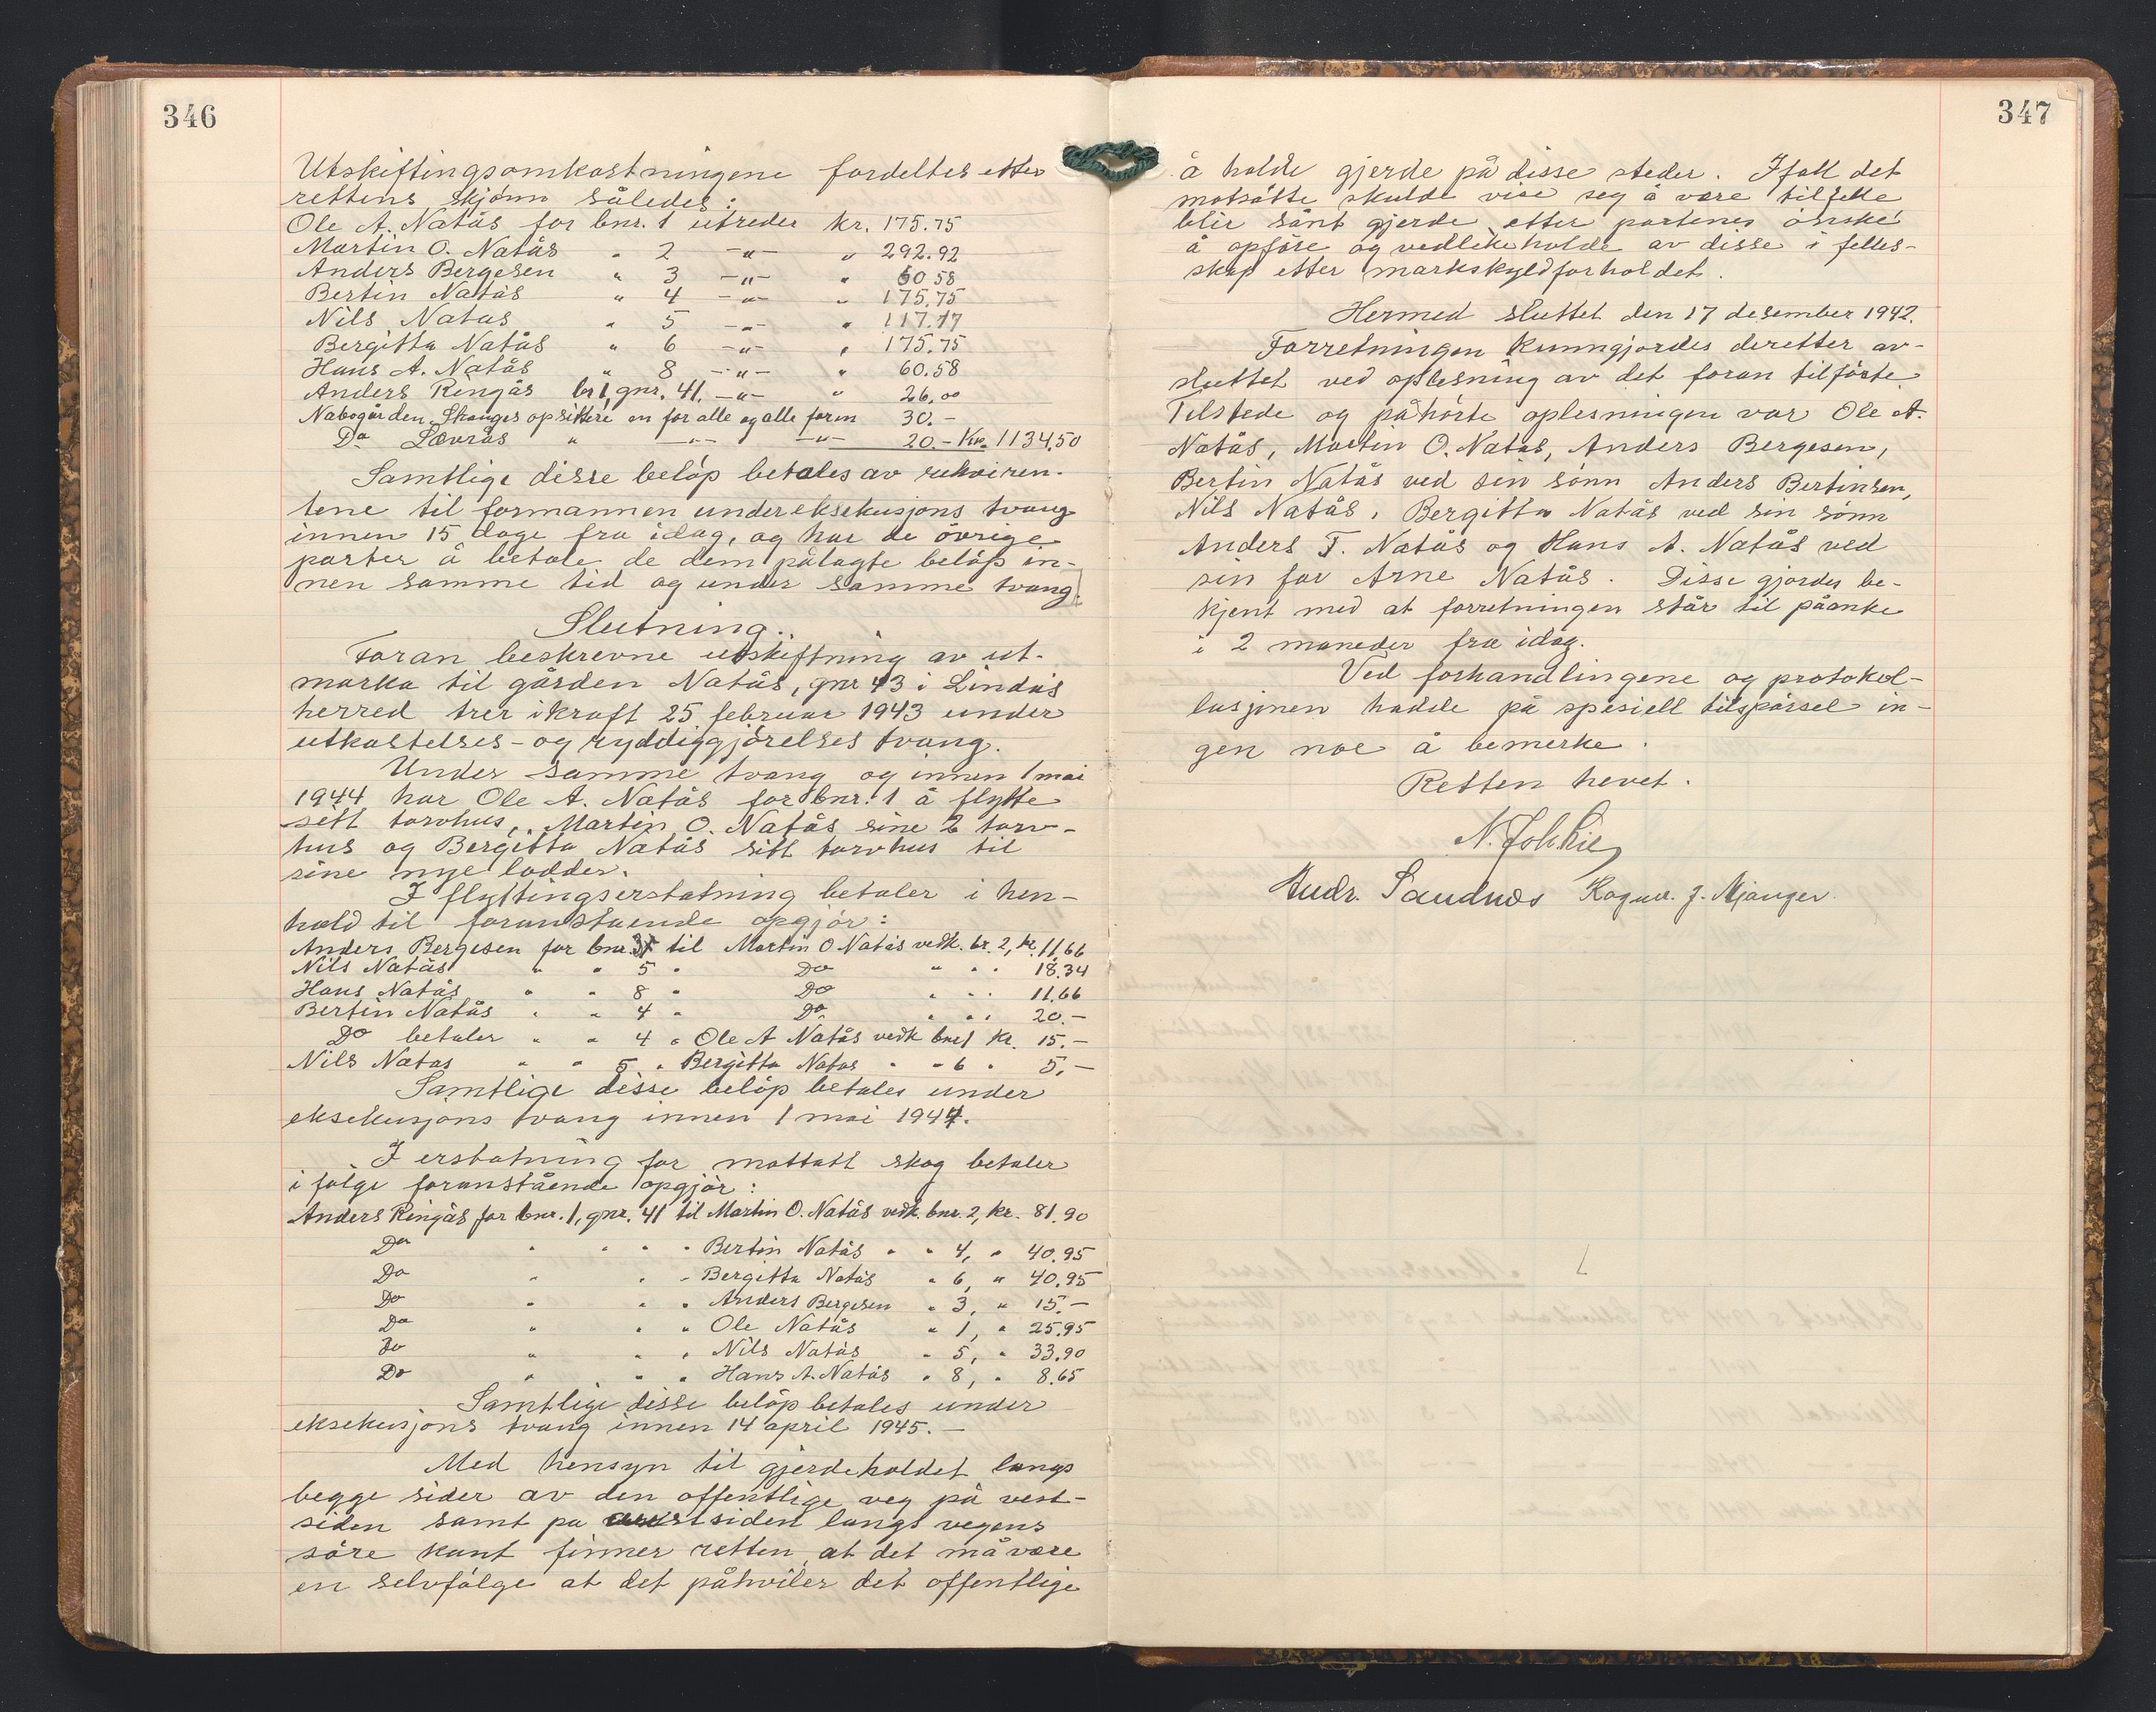 346
Utskiftingsomkostningene fordeltes etter
rettens skjönn således:
Ole A. Natås for bnr. 1 utreder kr. 175.75
Martin O. Natås " 2 -"- " 292.92
Anders Bergesen " 3 -"- " 60.58
Bertin Natås " 4 -"- " 175.75
Nils Natås " 5 -"- " 117.17
Bergitta Natås " 6 -"- " 175.75
Hans A. Natås " 8 -"- " 60.58
Anders Ringås br 1, gnr. 41. -"- " 26,00
Nabogården Skauges opsittere en for alle og alle for en 30.-
Do Lævrås " -"- -"- 20.- Kr. 1134,50
Samtlige disse belöp betales av rekviren-
tene til formannen under eksekusjons tvang
innen 15 dage fra idag, og har de övrige
parter å betale de dem pålagte belöp in-
nen samme tid og under samme tvang.
Slutning.
Foran beskrevne utskiftning av ut-
marka til gården Natås, gnr 43 i Lindås
herred trer ikraft 25 februar 1943 under
utkastelses- og ryddiggjörelses tvang.
Under samme tvang og innen 1 mai
1944 har Ole A. Natås for bnr. 1 å flytte
sitt torvhus, Martin O. Natås sine 2 torv-
hus og Bergitta Natås sitt torvhus til
sine nye lodder.
I flyttingserstatning betaler i hen-
hold til foranstaende opgjör:
Anders Bergesen for bnr. 3 til Martin O Natås vedk. br. 2, kr. 11,66
Nils Natås " " 5 " Do " " " 18.34
Hans Natås " " 8 " Do " " " 11.66
Bertin Natås " " 4 " Do " " " 20.-
Do betaler " " 4 " Ole A Natås vedk bnr 1 kr. 15.-
Nils Natås " " 5 " Bergitta Natås " " 6 " 5.-
Samtlige disse belöp betales under
eksekusjons tvang innen 1 mai 1944.
I erstatning for mottatt skog betaler
i fölge foranstående opgjör:
Anders Ringås for bnr. 1, gnr. 41 til Martin O. Natås vedk. bnr. 2, kr. 81.90
Do " " " " Bertin Natås " " 4, " 40.95
Do " " " Bergitta Natås " 6, " 40.95
Do " " " Anders Bergesen " 3, " 15.-
Do " " " Ole Natås " 1, " 25.95
Do " " " Nils Natås " 5, " 33.90
Do " " " Hans A. Natås " 8, " 8.65
Samtlige disse belöp betales under
eksekusjons tvang innen 14 april 1945.-
Med hensyn til gjerdeholdet langs
begge sider av den offentlige veg på vest-
siden samt på siden langs vegens
söre kant finner retten at det må være
en selvfölge at det påhviler det offentlige
347
å holde gjerde på disse steder. Ifall det
motsatte skulde vise seg å være tilfelle
blir sånt gjerde etter partenes önske
å opföre og vedlikeholde av disse i felles-
skap etter markskyldforholdet.
Hermed sluttet den 17 desember 1942.
Forretningen kunngjordes deretter av-
sluttet ved oplesning av det foran tilförte
Tilstede og påhörte oplesningen var Ole A.
Natås, Martin O. Natås, Anders Bergesen,
Bertin Natås ved sin sönn Anders Bertinsen,
Nils Natås, Bergitta Natås ved sin sönn
Anders T. Natås og Hans A. Natås ved
sin far Arne Natås. Disse gjordes be-
kjent med at forretningen står til påanke
i 2 måneder fra idag.
Ved forhandlingene og protokol-
lasjonen hadde på spesiell tilspörsel in-
gen noe å bemerke.
Retten hevet.
Andr. Sandnes Ragnv. J. Mjanger.